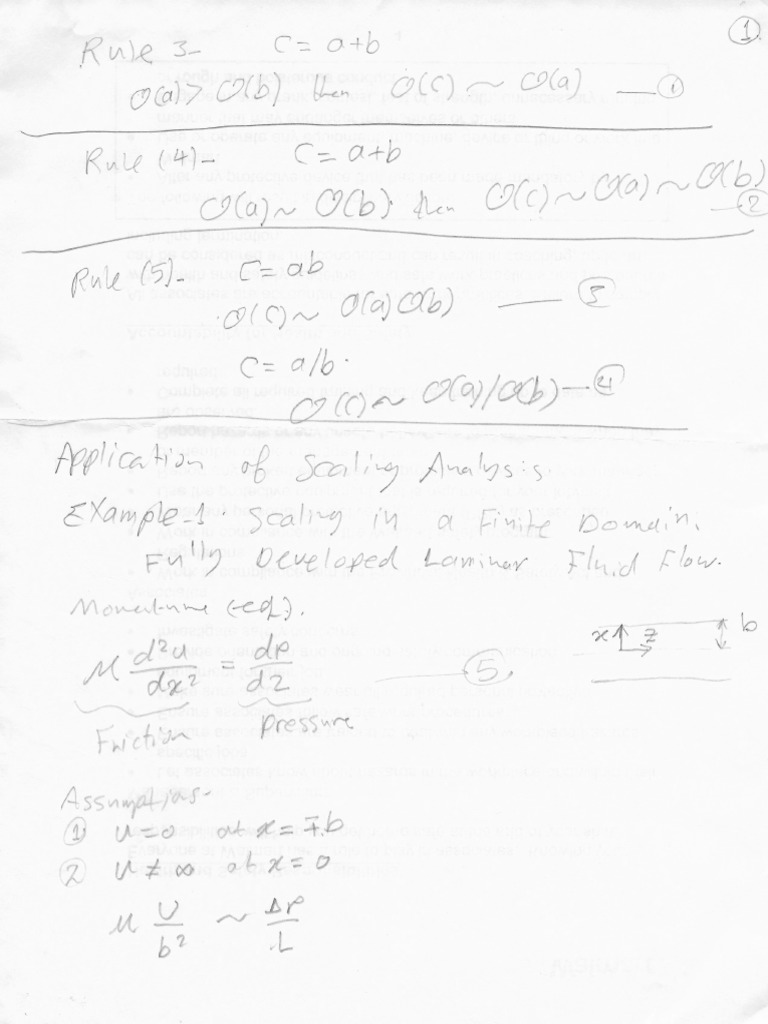 ①
Rule 3- C = a+b
O(a) > O(b) then O(c) ~ O(a) — ①
Rule (4)- C = a+b
O(a) ~ O(b) then O(c) ~ O(a) ~ O(b) — ②
Rule (5)- C = ab
O(c) ~ O(a) O(b) — ③
C = a/b.
O(c) ~ O(a)/O(b) — ④
Application of Scaling Analysis.
Example-1: Scaling in a Finite Domain.
Fully Developed Laminar Fluid Flow.
Momentume (eq).
x z b
μ d²u/dx² = dp/dz — ⑤
Friction Pressure
Assumptions-
① u=0 at x = ∓b
② U ≠ ∞ at x = 0
μ U/b² ~ ΔP/L